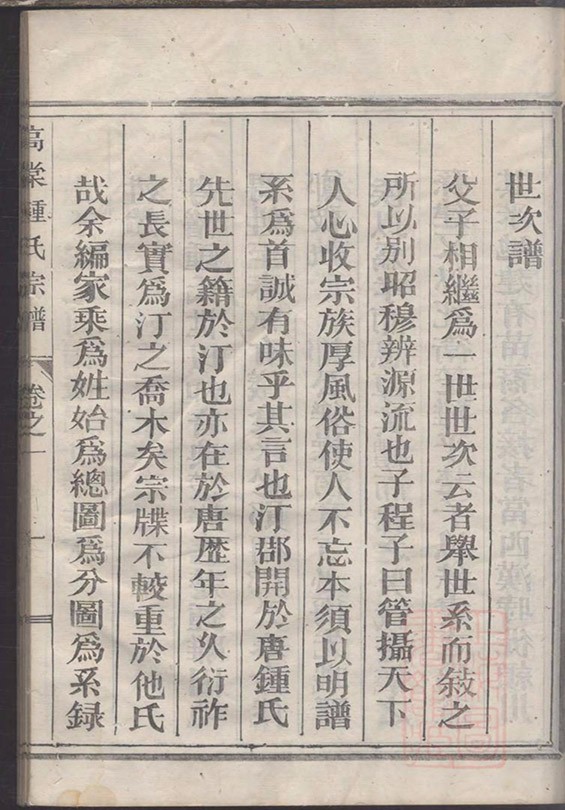 世次譜
父子相繼爲一世世次云者舉世系而敍之
所以别昭穆辨源流也子程子曰管攝天下
人心收宗族厚風俗使人不忘本須以明譜
系爲首誠有味乎其言也汀郡開於唐鍾氏
先世之籍於汀也亦在於唐歷年之久衍祚
之長實爲汀之喬木矣宗牒不較重於他氏
哉余編家乘爲姓始爲總圖爲分圖爲系錄
高棠鍾氏宗譜 卷之一